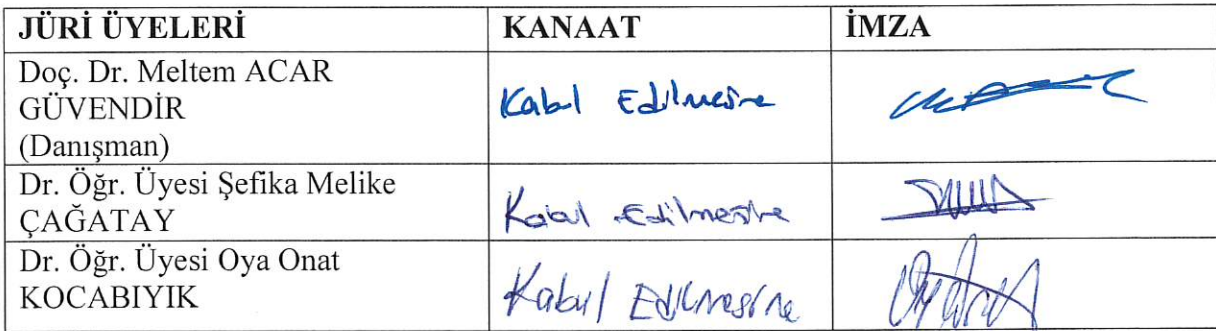 JÜRİ ÜYELERİ KANAAT İMZA
Doç. Dr. Meltem ACAR
GÜVENDİR
(Danışman)
Kabul Edilmesine
Dr. Öğr. Üyesi Şefika Melike
ÇAĞATAY
Kabul Edilmesine
Dr. Öğr. Üyesi Oya Onat
KOCABIYIK
Kabul Edilmesine